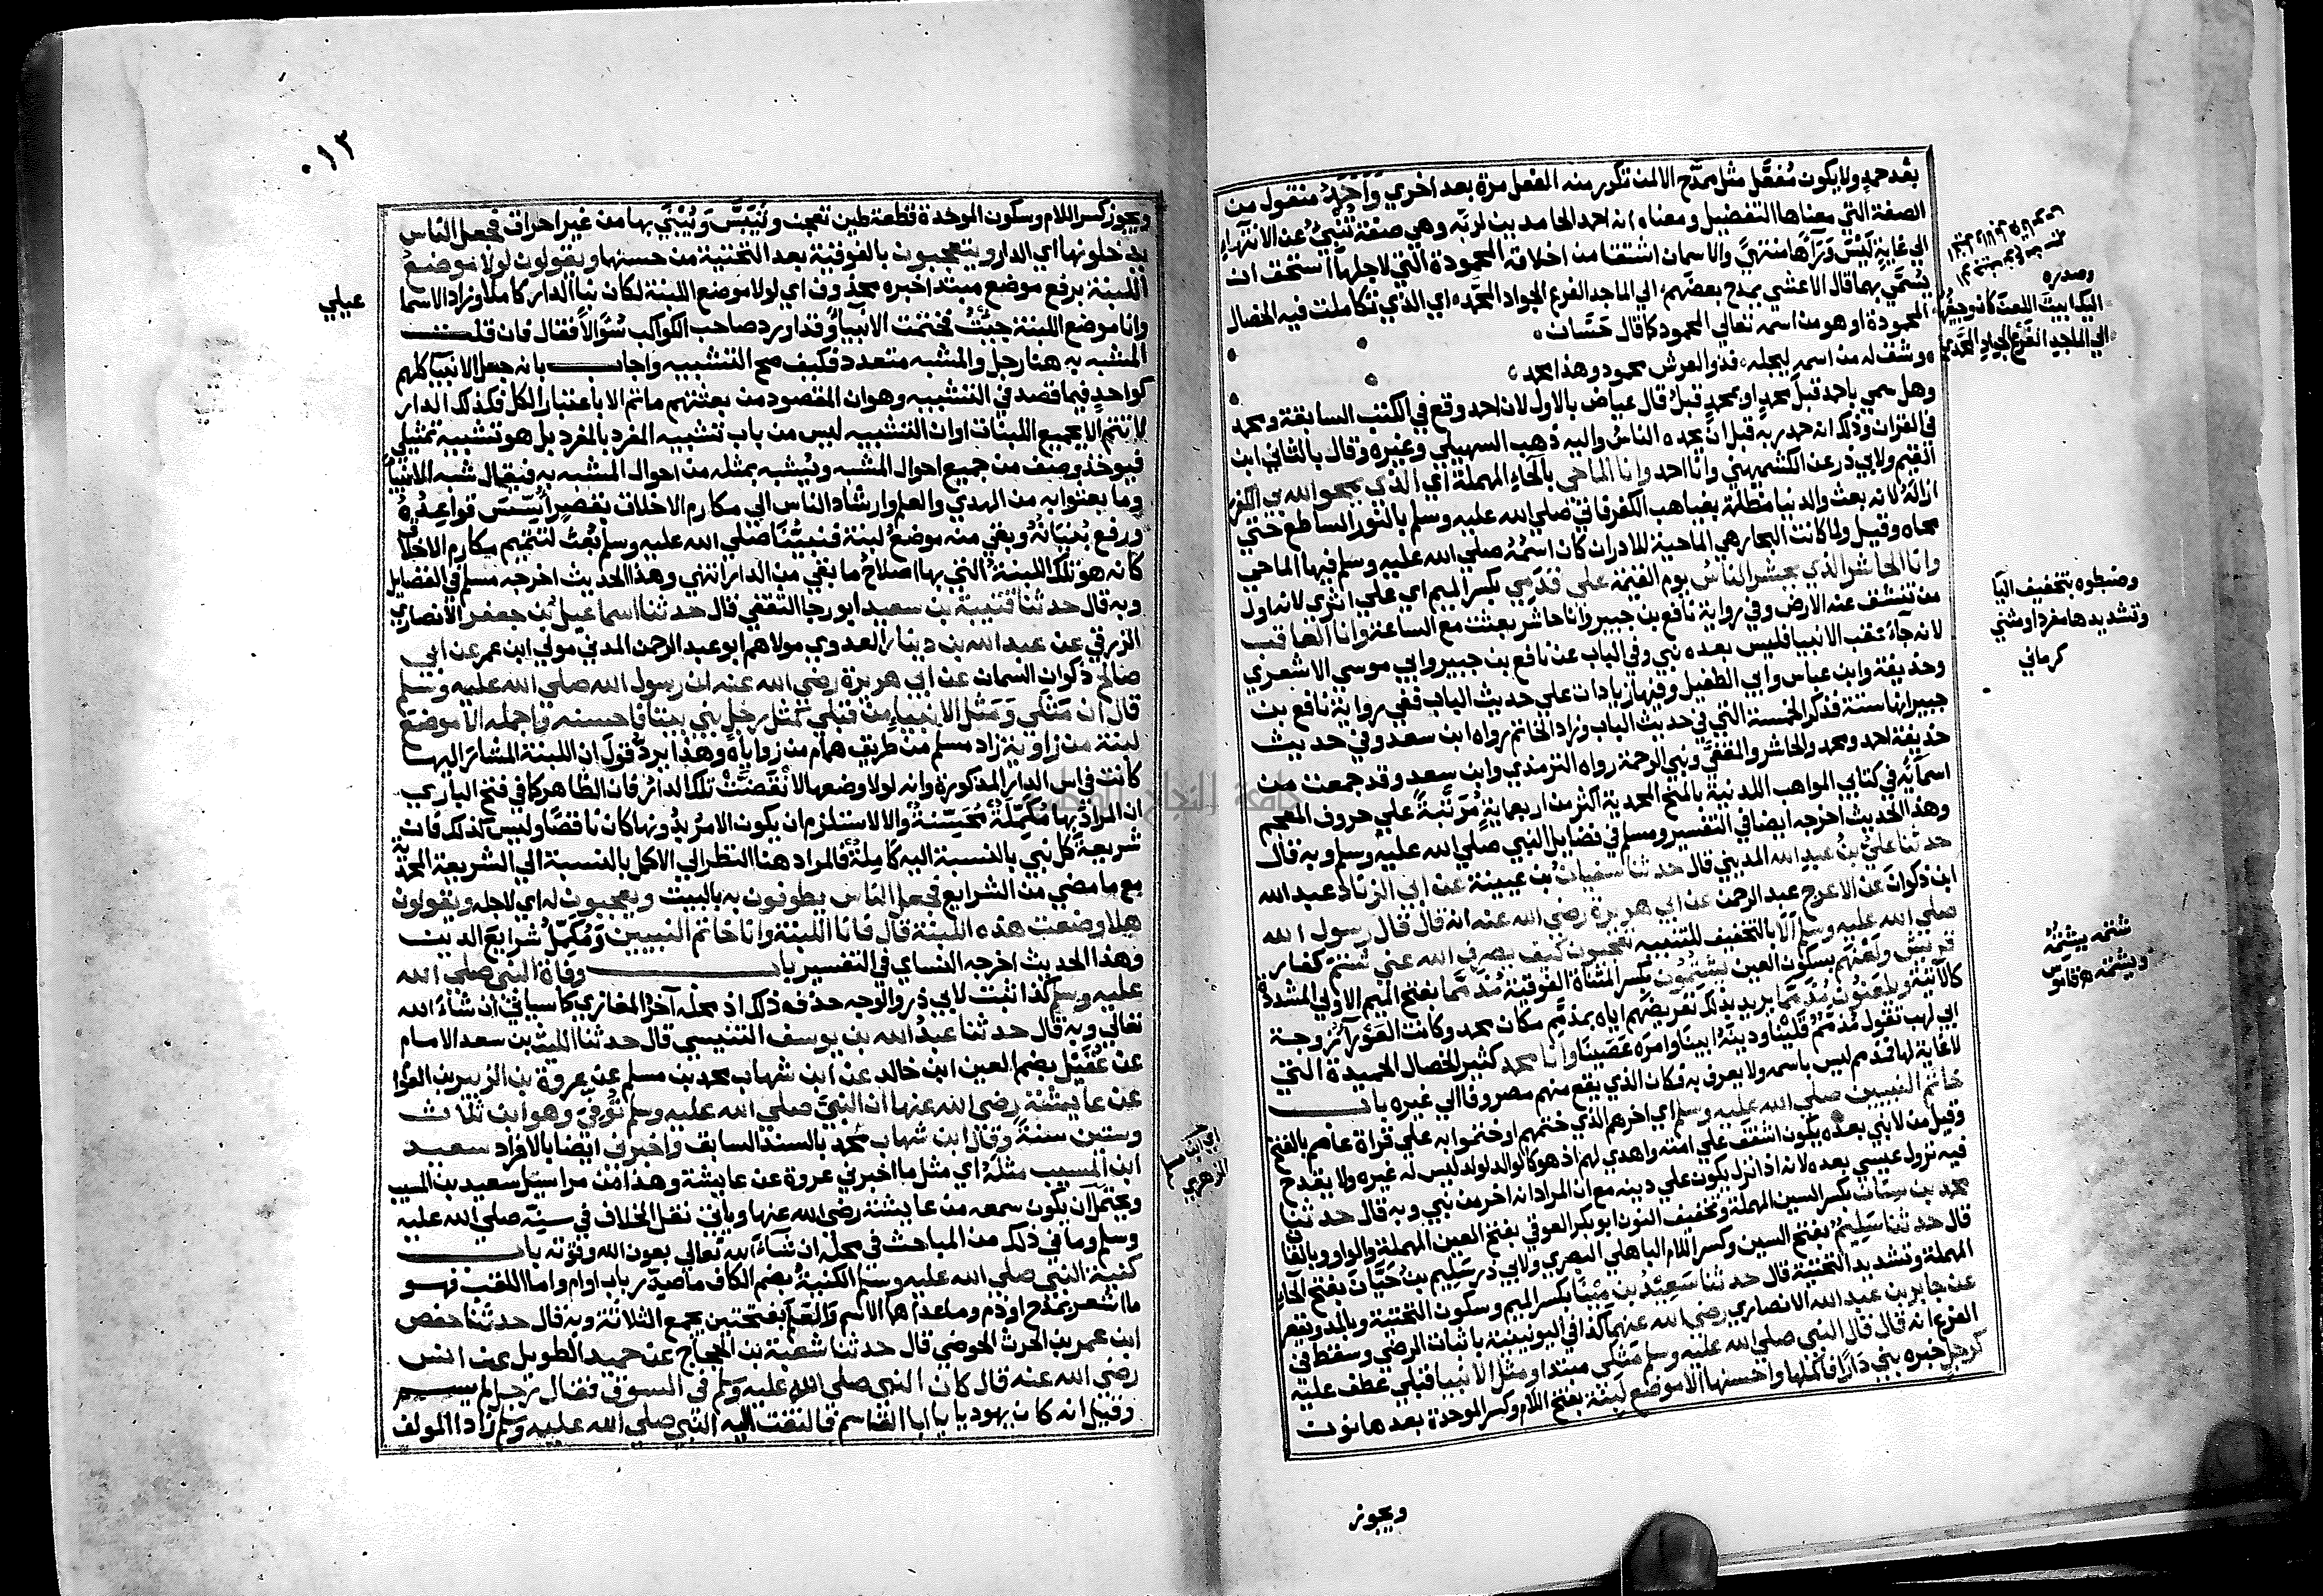 بعد حمد ولا يكون مُفعَّل مثل ممدّح الا لمن تكرر منه الفعل مرة بعد اخري وَاَحْمَدُ منقول من
الصفة التي معناها التفضيل ومعناه انه احمد الحامدين لربه وهي صفة تُنْبِيُ عن الانتهاء
الي غاية ليس وَرَآءَها منتهي والاسمان اشتقا من اخلاقه المحمودة التي لاجلها استحق ان
يُسَمَّي بهما قال الاعشي يمدح بعضهم، الي الماجد الفرع الجواد المحمد، اي الذي تكاملت فيه الخصال
المحمودة او هو من اسمه تعالي المحمود كما قال حَسَّان
وشق له من اسمه ليجله، فذو العرش محمود وهذا محمد
وهل سمي باحمد قبل محمدٍ او بمحمدٍ قبلُ قال عياض بالاول لان احمد وقع في الكتب السابقة ومحمد
في القران وذلك انه حمد ربه قبل ان يحمده الناسُ واليه ذهب السهيلي وغيره وقال بالثاني ابن
القيم ولابي ذر عن الكشميهني وانا احمد وانا الماحي بالحاء المهملة اي الذي يمحو الله بي الكفر
ازاله لانه بعث والدنيا مظلمة بغياهب الكفر فاتي صلي الله عليه وسلم بالنور الساطع حتي
محاه وقيل ولما كانت البحار هي الماحية للادران كان اسمُهُ صلي الله عليه وسلم فيها الماحي
وانا الحاشر الذي يحشر الناسُ يوم القيمة علي قدمي بكسر الميم اي علي اثري لانه اول
من تنشق عنه الارض وفي رواية نافع بن جبير وانا حاشر بعثت مع الساعة وانا العاقب
لانه جآءَ عقب الانبيا فليس بعده نبي وفي الباب عن نافع بن جبير وابي موسي الاشعري
وحذيفة وابن عباس وابي الطفيل وفيها زيادات علي حديث الباب ففي رواية نافع بن
جبير انها ستة فذكر الخمسة التي في حديث الباب وزاد الخاتم رواه ابن سعد وفي حديث
حذيفة احمد ومحمد والحاشر والمقفي ونبي الرحمة رواه الترمذي وابن سعد وقد جمعت من
اسمآئه في كتابي المواهب اللدنية بالمنح المحمدية اكثر من اربعماية مُرَتَّبةً علي حروف المعجم
وهذا الحديث اخرجه ايضا في التفسير ومسلم في فضايل النبي صلي الله عليه وسلم وبه قال
حدثنا عليّ بنُ عبد الله المديني قال حدثنا سفيان بن عيينة عن ابي الزناد عبد الله
ابن ذكوان عن الاعرج عبد الرحمن عن ابي هريرة رضي الله عنه انه قال قال رسول الله
صلي الله عليه وسلم الَا بالتخفيف للتنبيه تعجبون كيف يصرف الله عني شتم كفار
قريش ولعنهم بسكون العين يشتمون بكسر المثناة الفوقية مُذَمَّما بفتح الميم الاولي المشددة
كالآتية ويلعنون مُذَمَّما يريد بذلك تعريضهم اياه بمذمَّمٍ مكان محمد وكانت العَوْرآءُ زوجة
ابي لهب تقول مُذَمَّمٌ قَلَيْنا ودينَهُ ابينَا وامرَه عَصَينَا وانا محمد كثير الخصال الحميدة التي
لا غاية لها فمذمم ليس باسمه ولا يعرف به فكان الذي يقع منهم مصروفا الي غيره باب
خاتم النبيين صلي الله عليه وسلم اي اخرهم الذي ختمهم او ختموا به علي قراة عاصم بالفتح
وقيل من لا نبي بعده يكون اشفق علي امته واهدي لهم اذ هو كالوالد لولد ليس له غيره ولا يقدح
فيه نزول عيسي بعده لانه اذا نزل يكون علي دينه مع ان المراد انه اخر من نبي وبه قال حدثنا
محمد بن سنان بكسر السين المهملة وتخفيف النون ابو بكر العوقي بفتح العين المهملة والواو وبالقاف
قال حدثنا سَلِيمٌ بفتح السين وكسر اللام الباهلي البصري ولابي ذر سَلِيم بنُ حَيَّان بفتح الحآء
المهملة وتشديد التحتية قال حدثنا سَعِيْدُ بن مِيْنَا بكسر الميم وسكون التحتية وبالمد ويقصر
عن جابر بن عبد الله الانصاري رضي الله عنهما كذا في اليونينية باثبات الترضي وسقط في
الفرع انه قال قال النبي صلي الله عليه وسلم مَثَلِي مبتدا ومثل الانبيا قبلي عطف عليه
كرجل خبره بني دَارًا فاكملها واحسنها الا موضع لَبِنَة بفتح اللام وكسر الموحدة بعدها نون
وصدره
اليك ابيت اللعن كان وجيفها
الي الماجد الفرع الجواد المحمد
وضبطوه بتخفيف اليا
وتشديدها مفردا ومثني
كرماني
شتمه يشتِمُهُ
ويشتُمه قاموس
ويجوز
٠١٣
ويجوز كسر اللام وسكون الموحدة قطعة طين تعجن وتُيَبَّسُ وَيُبْنَي بها من غير احراق فجعل الناس
يدخلونها اي الدار ويتعجبون بالفوقية بعد التحتية من حسنها ويقولون لولا موضعُ
اللبنة برفع موضع مبتدا خبره محذوف اي لولا موضع اللبنة لكان بنا الدار كاملا وزاد الاسما
عيلي
وانا موضع اللبنة جِئتُ فختمت الانبيآءَ وقد اورد صاحب الكواكب سُؤالاً فقال فان قلت
المشبه به هنا رجل والمشبه متعدد فكيف صح التشبيه واجاب بانه جعل الانبيا كلهم
كواحدٍ فيما قصد في التشبيه وهو ان المقصود من بعثتهم ما تم الا باعتبار الكل فكذلك الدار
لا تتم الا بجميع اللبنات او ان التشبيه ليس من باب تشبيه المفرد بالمفرد بل هو تشبيه تمثيلي
فيوخذ وصف من جميع احوال المشبه ويُشبه بمثله من احوال المشبه به فيقال شبه الانبيآء
وما بعثوا به من الهدي والعلم وارشاد الناس الي مكارم الاخلاق بقصرٍ اُسِّسَ قواعِدُهُ
ورفع بُنيَانُهُ وبقي منه موضعُ لبنة فنبيُّنَا صلي الله عليه وسلم بُعثَ لتتميم مكارم الاخلاق
كانه هو تلك اللبنة التي بها اصلاحُ ما بقي من الدار انتهي وهذا الحديث اخرجه مسلم في الفضايل
وبه قال حدثنا قتيبة بن سعيد ابو رجا الثقفي قال حدثنا اسماعيل بن جعفر الانصاري
الزرقي عن عبد الله بن دينار العدوي مولاهم ابو عبد الرحمن المدني مولي ابن عمر عن ابي
صالح ذكوان السمان عن ابي هريرة رضي الله عنه ان رسول الله صلي الله عليه وسلم
قال ان مَثَلي وَمَثَل الانبيآءِ مِن قبلي كمثل رجلٍ بني بيتا فاحسنه واجمله الا موضعَ
لبنة من زاوية زاد مسلم من طريق همام من زواياه وهذا يرد قولَ ان اللبنة المشار اليها
كانت في اس الدار المذكورة وانه لولا وضعها لانقَضَّتْ تلك الدار فان الظاهر كما في فتح الباري
ان المرادَ بها مُكمِّلَةٌ مُحَسِّنةٌ والا لاستلزم ان يكون الامر بدونها كان ناقصا وليس كذلك فان
شريعةَ كل نبي بالنسبة اليه كامِلةٌ فالمراد هنا النظر الي الاكمل بالنسبة الي الشريعة المحمدية
مع ما مضي من الشرايع فجعل الناس يطوفون به بالبيت ويعجبون له اي لاجله ويقولون
هلا وضعت هذه اللبنة قال فانا اللبنة وانا خاتم النبيين وَمُكَمِّلُ شرايع الدين
وهذا الحديث اخرجه النساي في التفسير باب وفاة النبي صلي الله
عليه وسلم كذا ثبت لابي ذر والوجه حذفه ذلك اذ محله آخرُ المغازي كما سياتي ان شآء الله
تعالي وبه قال حدثنا عبدُ الله بن يوسف التنيسي قال حدثنا الليث بن سعد الامام
عن عُقَيْلٍ بضم العين ابن خالد عن ابن شهاب محمد بن مسلم عن عروة بن الزبير بن العوام
عن عايشة رضي الله عنها ان النبيَّ صلي الله عليه وسلم تُوُفِّيَ وهو ابن ثلاث
وستين سنةً وقال ابن شهاب محمد بالسند السابق واخبرني ايضا بالافراد سعيد
اي ابن
الزهري
ابن المسيب مثلَهُ اي مثل ما اخبرني عروة عن عايشة وهذا من مراسيل سعيد بن المسيب
ويحتمل ان يكون سمعه من عايشة رضي الله عنها وياتي نقل الخلاف في سنه صلي الله عليه
وسلم وما في ذلك من المباحث في محله ان شآء الله تعالي بعون الله وقوته باب
كنية النبي صلي الله عليه وسلم الكنية بضم الكاف ما صدر باب او ام واما اللقب فهو
ما اشعر بمدح او ذم وما عداهما الاسم والعَلَم بفتحتين يجمع الثلاثة وبه قال حدثنا حفص
ابن عمر بن الحرث الحوضي قال حدثنا شعبة بن الحجاج عن حميد الطويل عن انس
رضي الله عنه قال كان النبي صلي الله عليه وسلم في السوق فقال رجل لم يسم
وقيل انه كان يهوديا يا ابا القاسم فالتفت اليه النبي صلي الله عليه وسلم زاد المولف
جامعة النجاح الوطنية